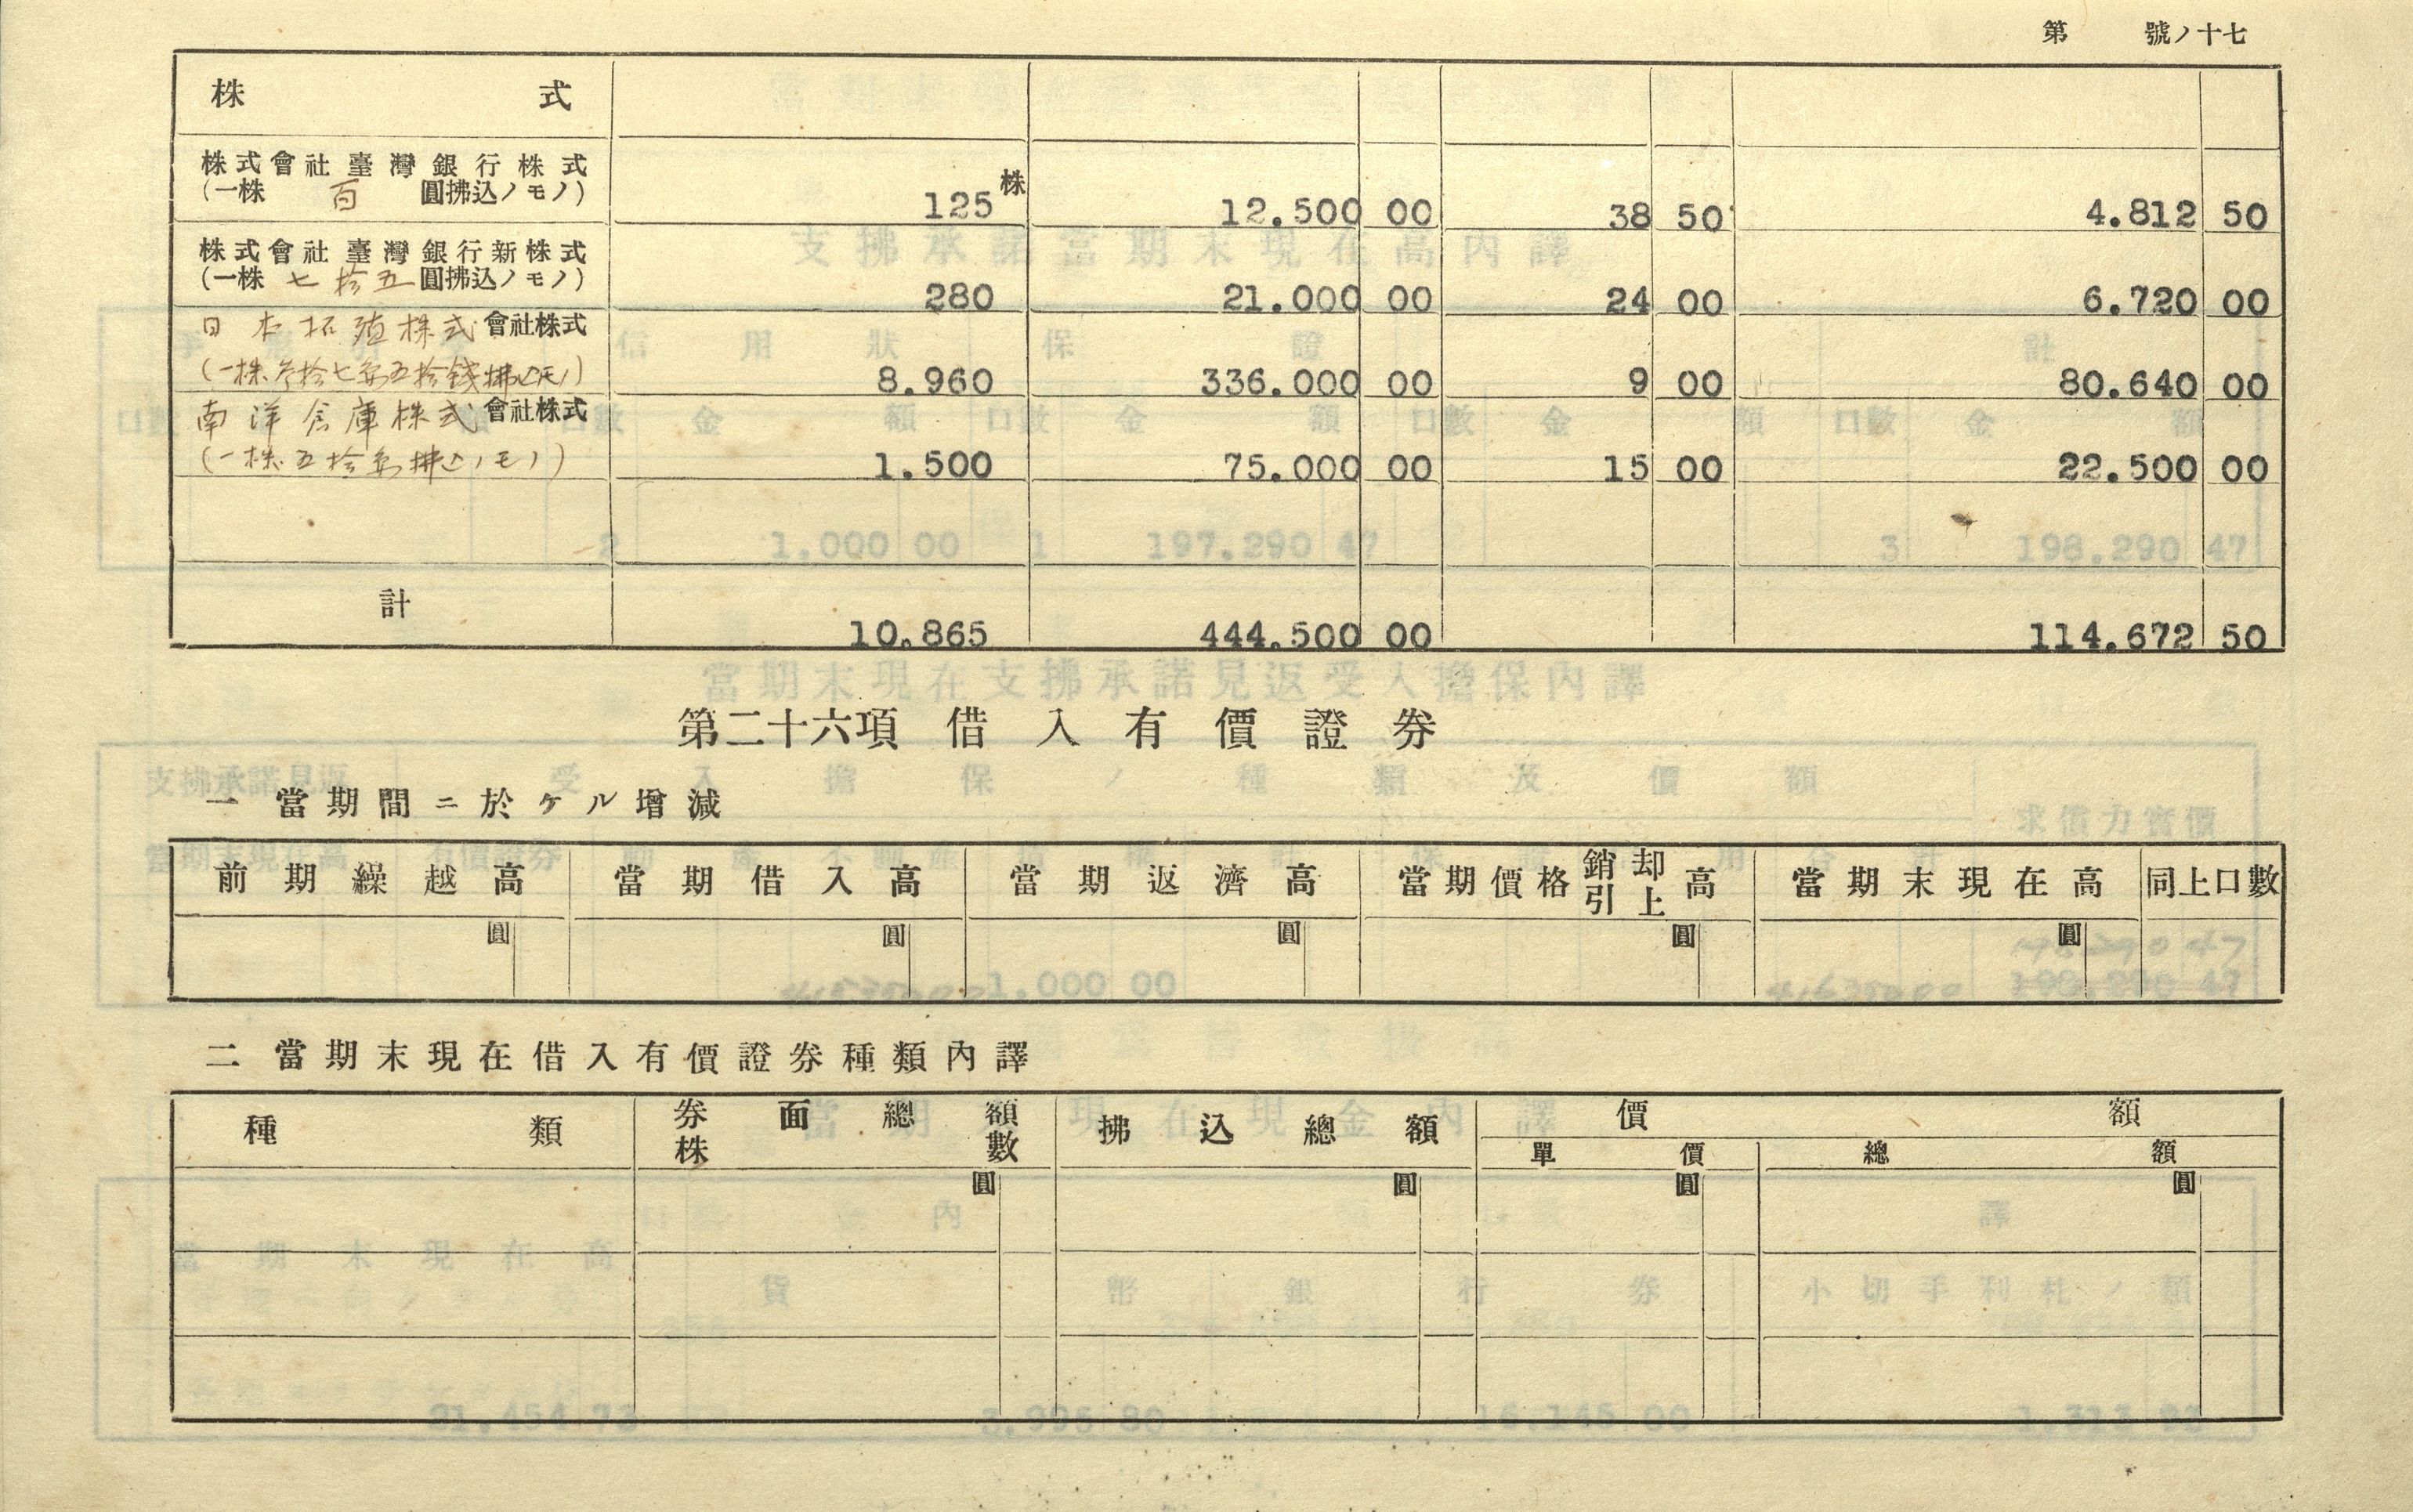 第 號ノ十七
株 式
株式會社臺灣銀行株式
(一株 百 圓拂込ノモノ) 125 株 12.500 00 38 50 4.812 50
株式會社臺灣銀行新株式
(一株 七拾五 圓拂込ノモノ) 280 21.000 00 24 00 6.720 00
日本拓殖株式會社株式
(一株参拾七円五拾銭拂込ノモノ) 8.960 336.000 00 9 00 80.640 00
南洋倉庫株式會社株式
(一株五拾円拂込ノモノ) 1.500 75.000 00 15 00 22.500 00
計 10.865 444.500 00 114.672 50
第二十六項 借入有價證券
一 當期間ニ於ケル增減
前期繰越高 當期借入高 當期返濟高 當期價格銷却引上高 當期末現在高 同上口數
圓 圓 圓 圓 圓
二 當期末現在借入有價證券種類內譯
種類 券面總額 株數 拂込總額 價額
單價 總額
圓 圓 圓 圓